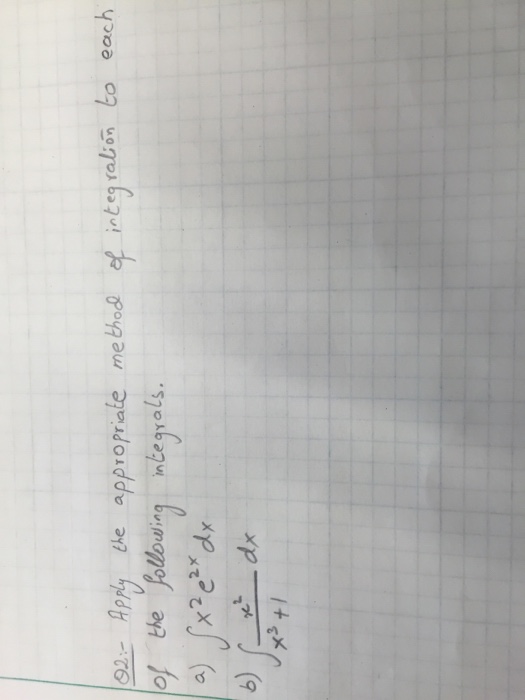 Q2:- Apply the appropriate method of integration to each
of the following integrals.
a) ∫x²e²ˣ dx
b) ∫ x²/(x³+1) dx